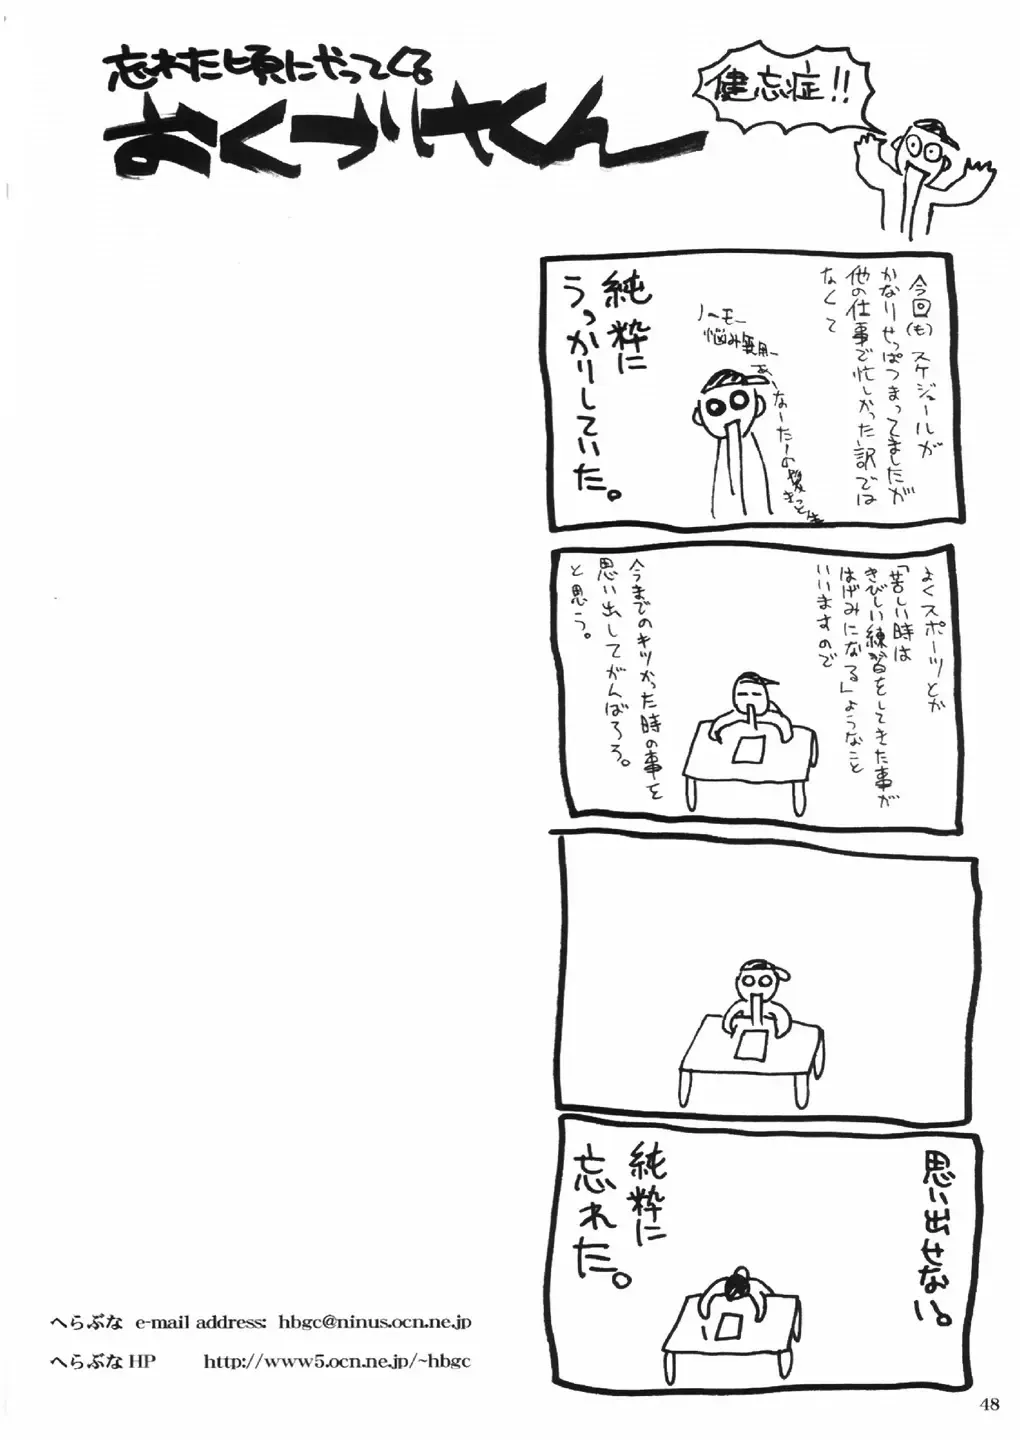 忘れた頃にやってくる
おくづけくん
健忘症!!
今回(も)スケジュールが
かなりせっぱつまってましたが
他の仕事で忙しかった訳では
なくて
ノーモー
悩み無用ー
あーなーたーの髪
きっと生
純粋に
うっかりしていた。
よくスポーツとか
「苦しい時は
きびしい練習をしてきた事が
はげみになる」ようなこと
いいますので
今までのキツかった時の事を
思い出してがんばろう。
と思う。
思い出せない。
純粋に
忘れた。
へらぶな e-mail address: hbgc@ninus.ocn.ne.jp
へらぶな HP http://www5.ocn.ne.jp/~hbgc
48